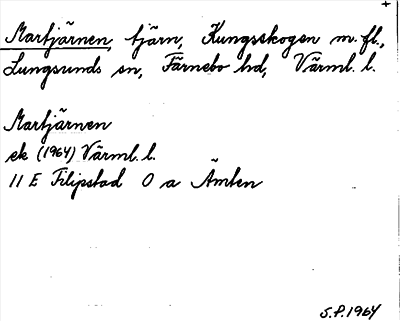 +
Martjärnen, tjärn, Kungsskogen m.fl.,
Lungsunds sn, Färnebo hd, Värml. l.
Martjärnen
ek (1964) Värml. l.
11 E Filipstad 0 a Ämten
S.P. 1964